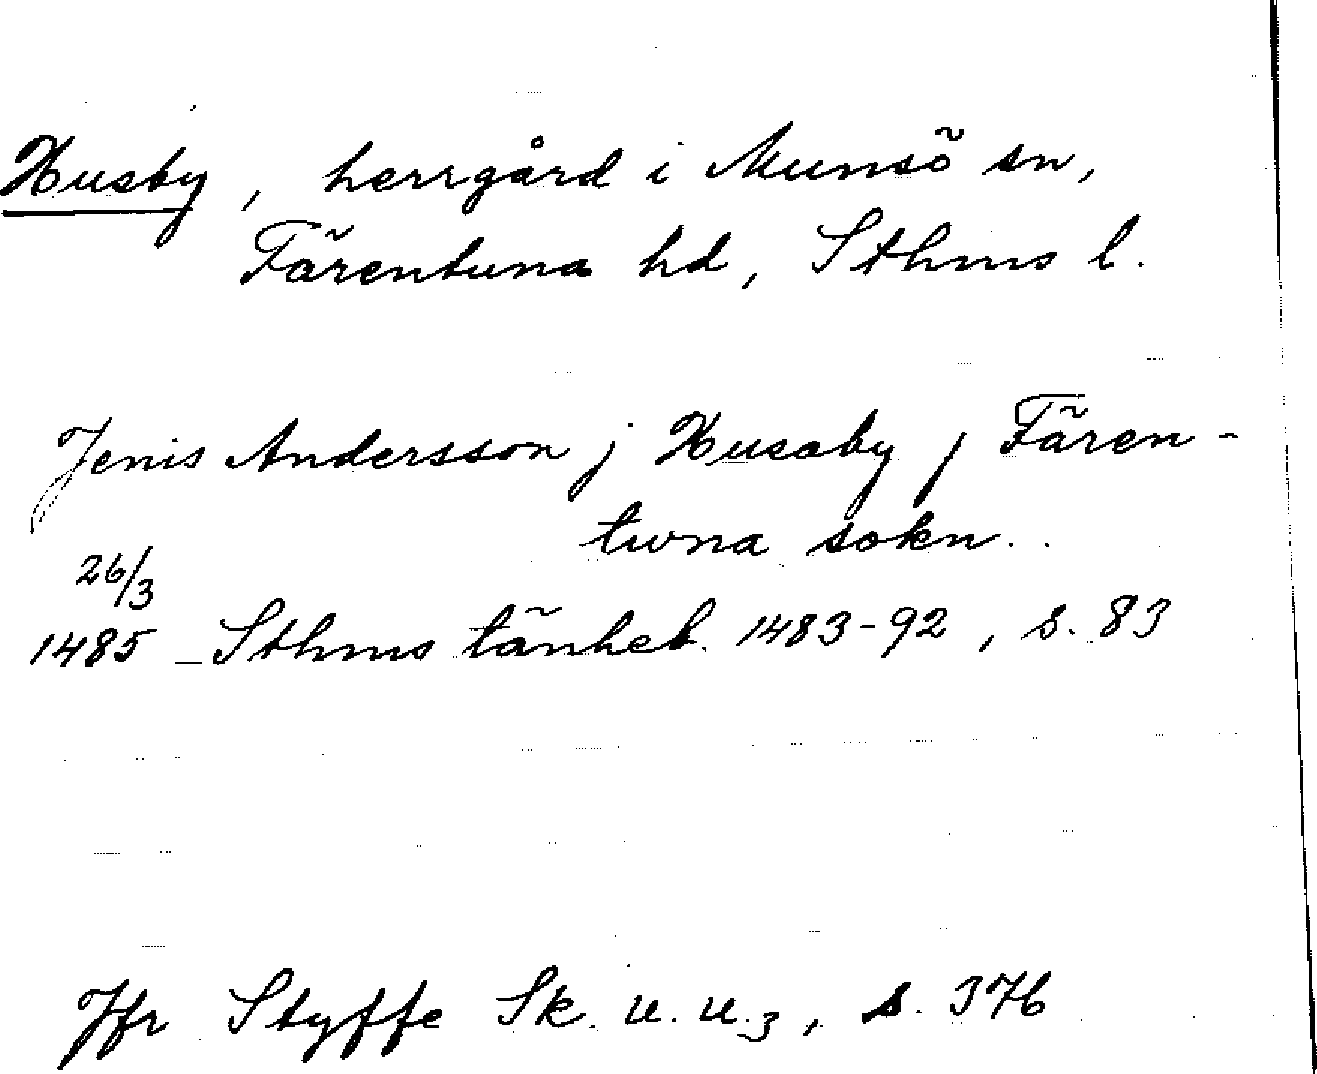 Husby, herrgård i Munsö sn,
Färentuna hd, Sthms l.
Jenis Andersson j Husaby j Fären-
tuna sokn..
26/3
1485 Sthms tänkeb. 1483-92, s. 83
Jfr Styffe Sk. u. u.3, s. 376